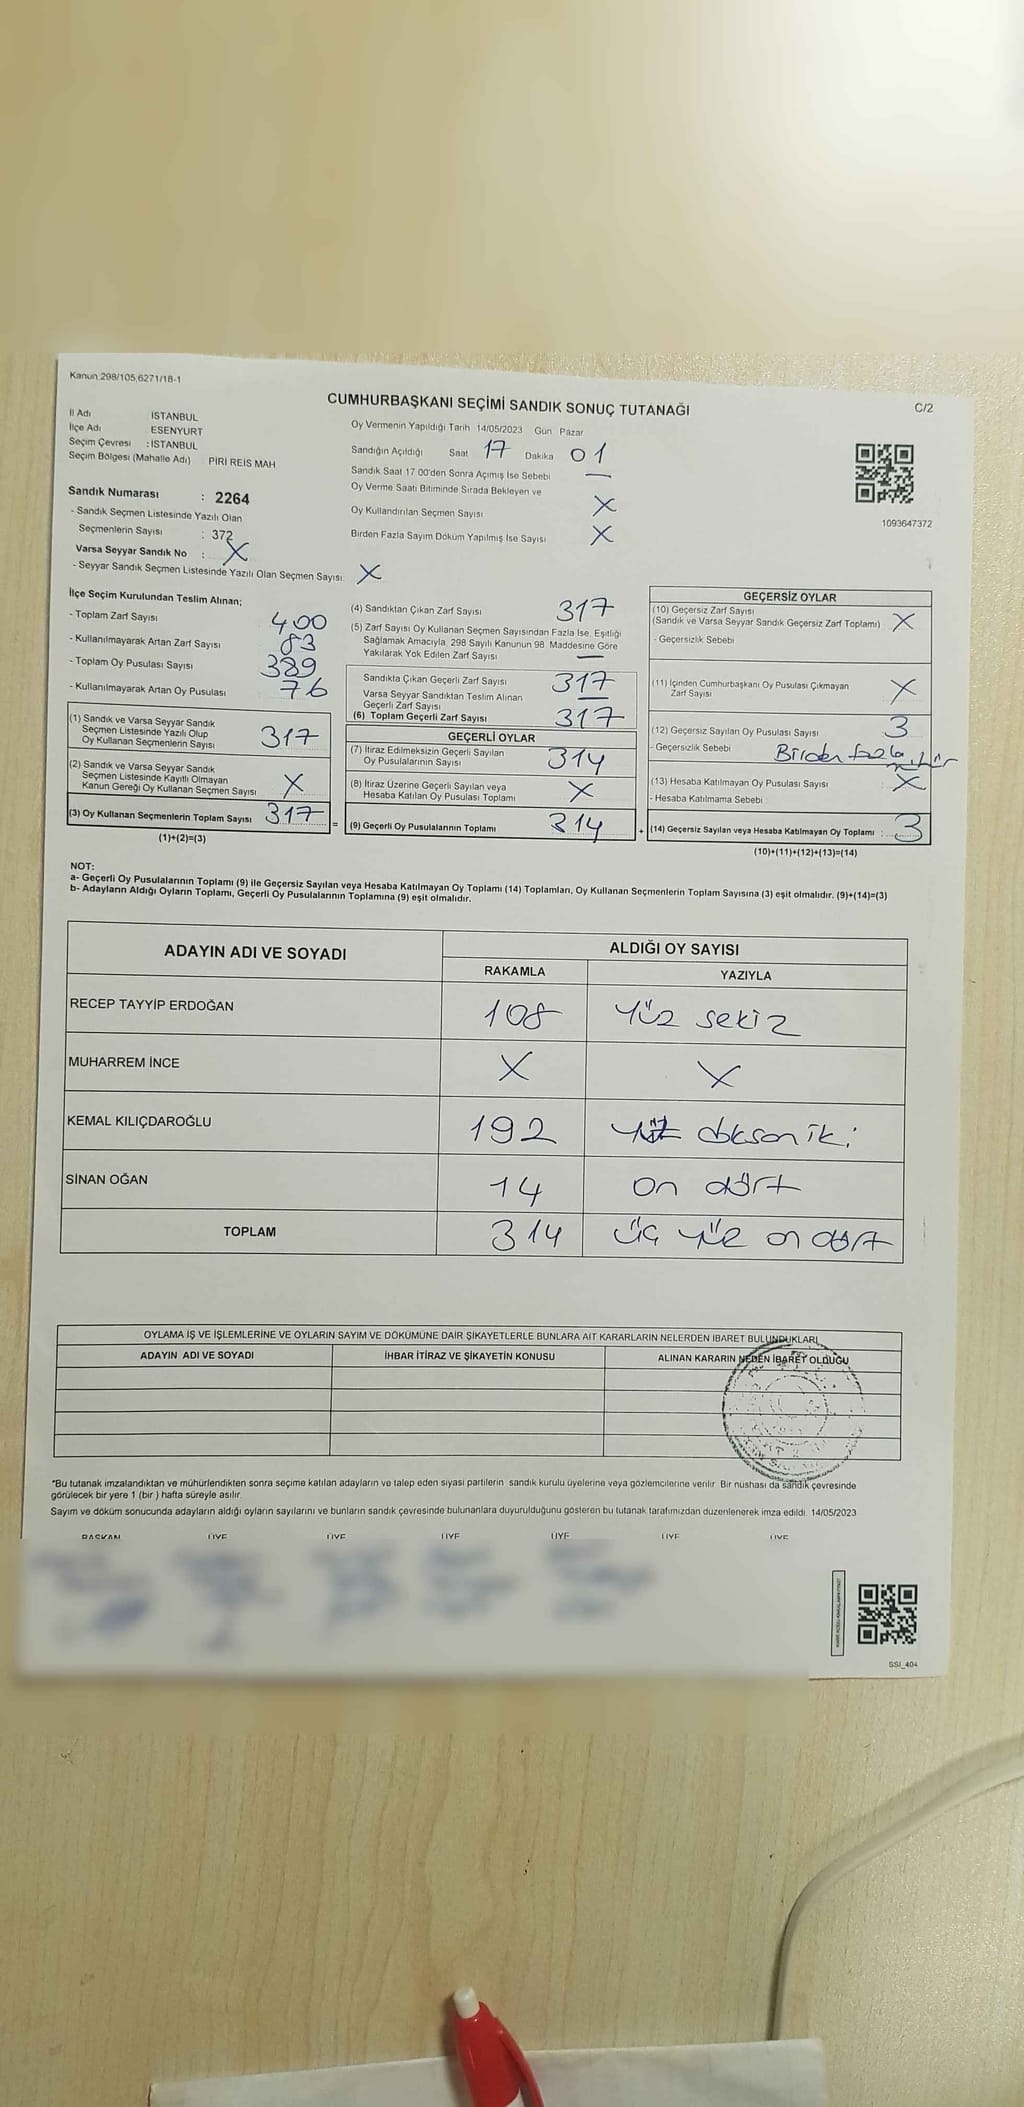 Kanun 298/105,6271/18-1
C/2
CUMHURBAŞKANI SEÇİMİ SANDIK SONUÇ TUTANAĞI
İl Adı İSTANBUL
İlçe Adı ESENYURT
Seçim Çevresi : İSTANBUL
Seçim Bölgesi (Mahalle Adı) PİRİ REİS MAH
Sandık Numarası : 2264
- Sandık Seçmen Listesinde Yazılı Olan
Seçmenlerin Sayısı : 372
Varsa Seyyar Sandık No : X
- Seyyar Sandık Seçmen Listesinde Yazılı Olan Seçmen Sayısı: X
Oy Vermenin Yapıldığı Tarih 14/05/2023 Gün Pazar
Sandığın Açıldığı Saat 17 Dakika 01
Sandık Saat 17 00'den Sonra Açımış İse Sebebi —
Oy Verme Saati Bitiminde Sırada Bekleyen ve
Oy Kullandırılan Seçmen Sayısı X
Birden Fazla Sayım Döküm Yapılmış İse Sayısı X
1093647372
İlçe Seçim Kurulundan Teslim Alınan;
- Toplam Zarf Sayısı 400
- Kullanılmayarak Artan Zarf Sayısı 83
- Toplam Oy Pusulası Sayısı 389
- Kullanılmayarak Artan Oy Pusulası 76
(1) Sandık ve Varsa Seyyar Sandık
Seçmen Listesinde Yazılı Olup
Oy Kullanan Seçmenlerin Sayısı 317
(2) Sandık ve Varsa Seyyar Sandık
Seçmen Listesinde Kayıtlı Olmayan
Kanun Gereği Oy Kullanan Seçmen Sayısı X
(3) Oy Kullanan Seçmenlerin Toplam Sayısı 317
(1)+(2)=(3)
=
(4) Sandıktan Çıkan Zarf Sayısı 317
(5) Zarf Sayısı Oy Kullanan Seçmen Sayısından Fazla İse, Eşitliği
Sağlamak Amacıyla, 298 Sayılı Kanunun 98. Maddesine Göre
Yakılarak Yok Edilen Zarf Sayısı —
Sandıkta Çıkan Geçerli Zarf Sayısı 317
Varsa Seyyar Sandıktan Teslim Alınan
Geçerli Zarf Sayısı —
(6) Toplam Geçerli Zarf Sayısı 317
GEÇERLİ OYLAR
(7) İtiraz Edilmeksizin Geçerli Sayılan
Oy Pusulalarının Sayısı 314
(8) İtiraz Üzerine Geçerli Sayılan veya
Hesaba Katılan Oy Pusulası Toplamı X
(9) Geçerli Oy Pusulalarının Toplamı 314
+
GEÇERSİZ OYLAR
(10) Geçersiz Zarf Sayısı
(Sandık ve Varsa Seyyar Sandık Geçersiz Zarf Toplamı) X
- Geçersizlik Sebebi
(11) İçinden Cumhurbaşkanı Oy Pusulası Çıkmayan
Zarf Sayısı X
(12) Geçersiz Sayılan Oy Pusulası Sayısı 3
- Geçersizlik Sebebi Birden fazla mühür
(13) Hesaba Katılmayan Oy Pusulası Sayısı X
- Hesaba Katılmama Sebebi
(14) Geçersiz Sayılan veya Hesaba Katılmayan Oy Toplamı : 3
(10)+(11)+(12)+(13)=(14)
NOT:
a- Geçerli Oy Pusulalarının Toplamı (9) ile Geçersiz Sayılan veya Hesaba Katılmayan Oy Toplamı (14) Toplamları, Oy Kullanan Seçmenlerin Toplam Sayısına (3) eşit olmalıdır. (9)+(14)=(3)
b- Adayların Aldığı Oyların Toplamı, Geçerli Oy Pusulalarının Toplamına (9) eşit olmalıdır.
ADAYIN ADI VE SOYADI ALDIĞI OY SAYISI
RAKAMLA YAZIYLA
RECEP TAYYİP ERDOĞAN 108 Yüz sekiz
MUHARREM İNCE X X
KEMAL KILIÇDAROĞLU 192 Yüz doksan iki
SİNAN OĞAN 14 on dört
TOPLAM 314 üç yüz on dört
OYLAMA İŞ VE İŞLEMLERİNE VE OYLARIN SAYIM VE DÖKÜMÜNE DAİR ŞİKAYETLERLE BUNLARA AİT KARARLARIN NELERDEN İBARET BULUNDUKLARI
ADAYIN ADI VE SOYADI İHBAR İTİRAZ VE ŞİKAYETİN KONUSU ALINAN KARARIN NEDEN İBARET OLDUĞU
*Bu tutanak imzalandıktan ve mühürlendikten sonra seçime katılan adayların ve talep eden siyasi partilerin sandık kurulu üyelerine veya gözlemcilerine verilir. Bir nüshası da sandık çevresinde
görülecek bir yere 1 (bir ) hafta süreyle asılır.
Sayım ve döküm sonucunda adayların aldığı oyların sayılarını ve bunların sandık çevresinde bulunanlara duyurulduğunu gösteren bu tutanak tarafımızdan düzenlenerek imza edildi. 14/05/2023
BAŞKAN ÜYE ÜYE ÜYE ÜYE ÜYE ÜYE
SSI_404